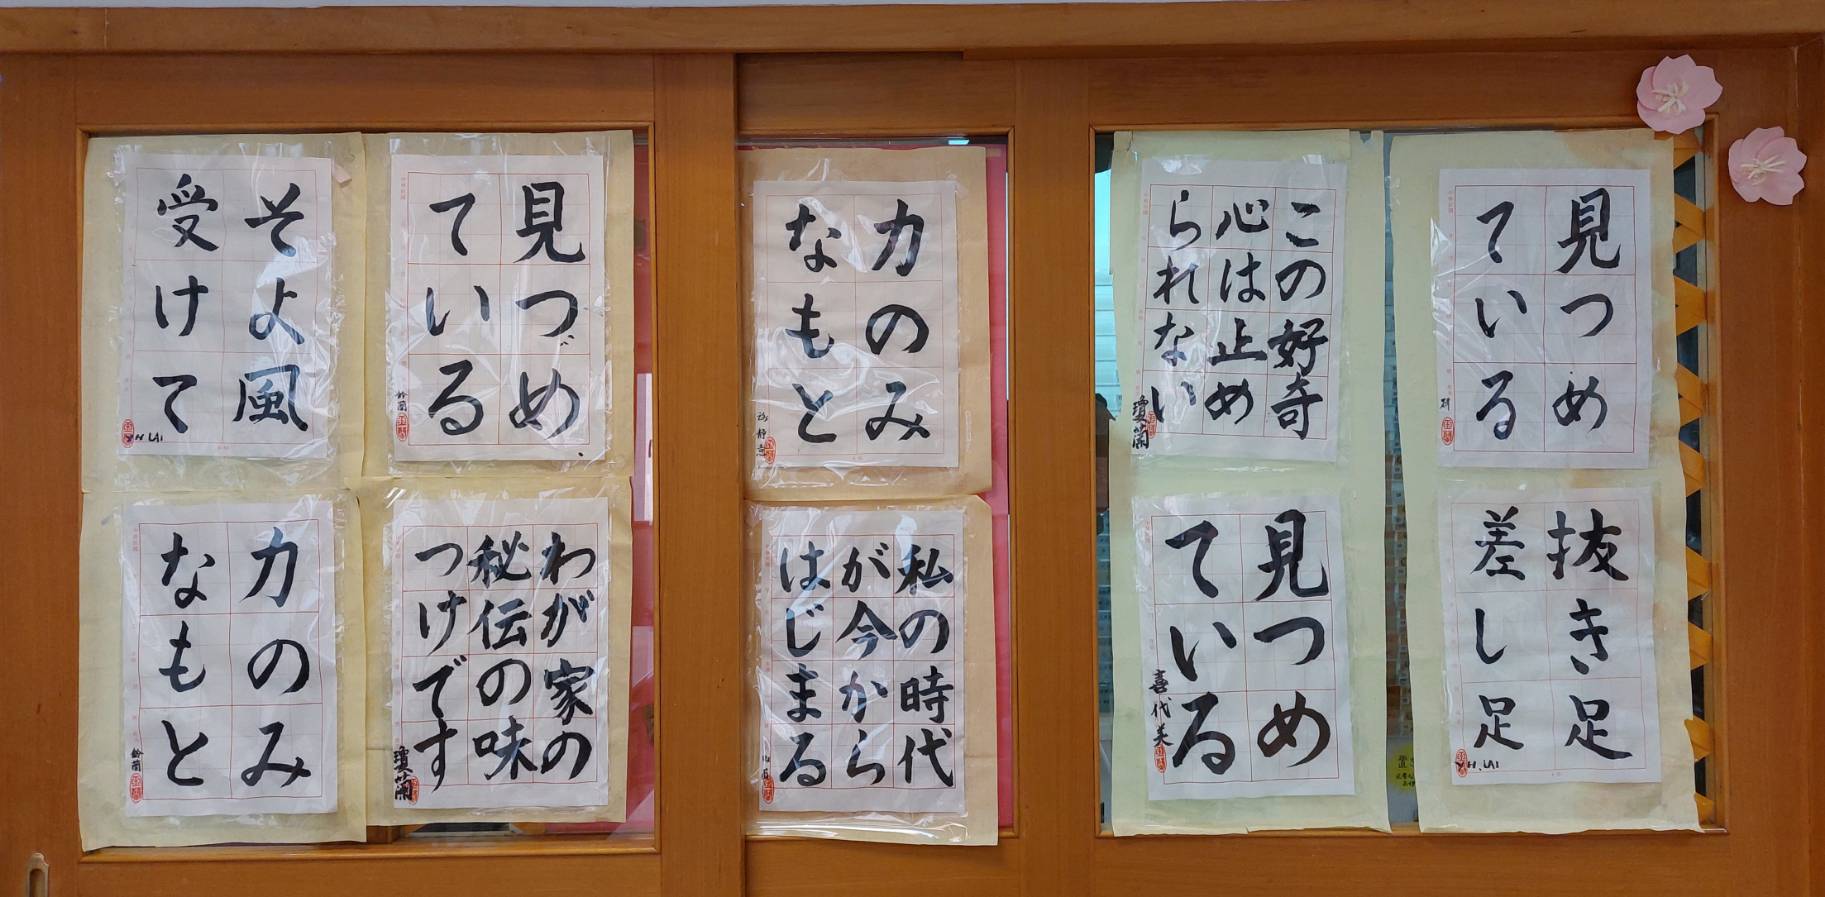 そよ風
受けて
YH LAI
見つめ
ている
鈴蘭
力のみ
なもと
この好奇
心は止め
られない
瓊蘭
見つめ
ている
力のみ
なもと
鈴蘭
わが家の
秘伝の味
つけです
瓊蘭
私の時代
が今から
はじまる
見つめ
ている
喜代美
抜き足
差し足
Y.H. LAI